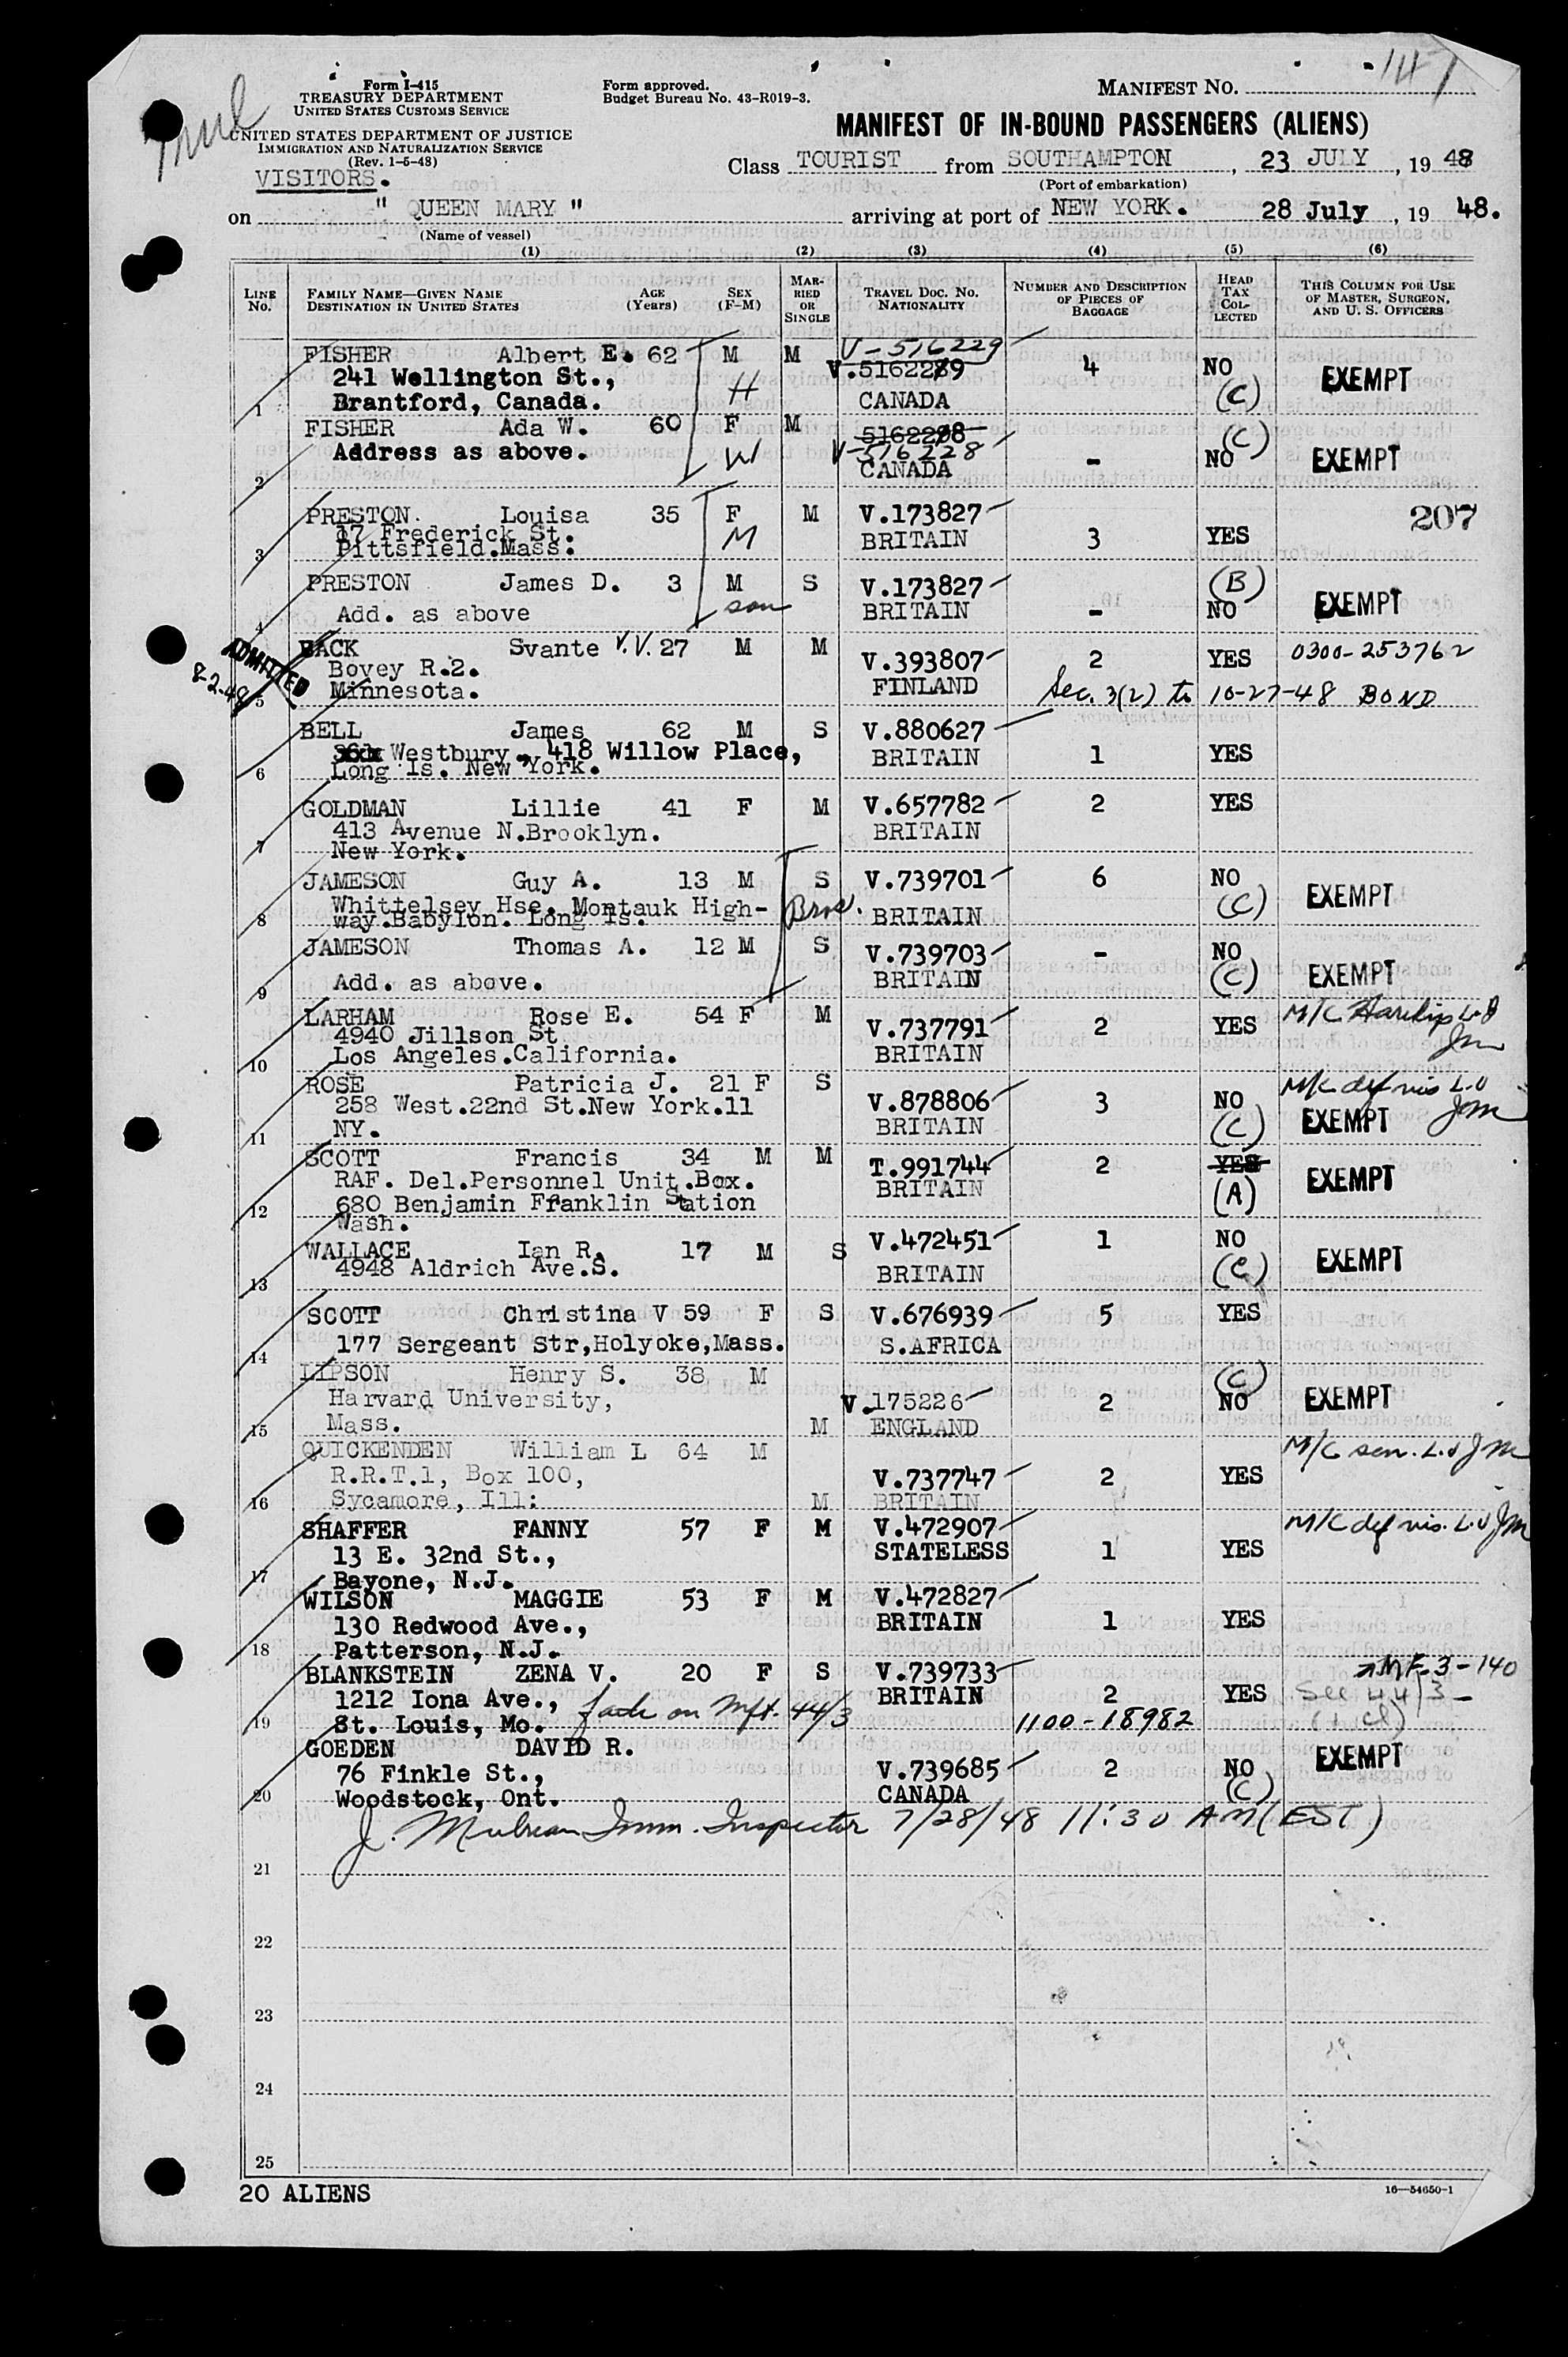 147
Form I-415
TREASURY DEPARTMENT
UNITED STATES CUSTOMS SERVICE
UNITED STATES DEPARTMENT OF JUSTICE
IMMIGRATION AND NATURALIZATION SERVICE
(Rev. 1-5-48)
Form approved.
Budget Bureau No. 43-R019-3.
MANIFEST NO.
MANIFEST OF IN-BOUND PASSENGERS (ALIENS)
Class TOURIST from SOUTHAMPTON, 23 JULY, 19 48
(Port of embarkation)
VISITORS.
on " QUEEN MARY " arriving at port of NEW YORK. 28 July, 19 48.
(Name of vessel)
(1) (2) (3) (4) (5) (6)
LINE NO. FAMILY NAME—GIVEN NAME DESTINATION IN UNITED STATES AGE (Years) SEX (F-M) MARRIED OR SINGLE TRAVEL DOC. NO. NATIONALITY NUMBER AND DESCRIPTION OF PIECES OF BAGGAGE HEAD TAX COLLECTED THIS COLUMN FOR USE OF MASTER, SURGEON, AND U. S. OFFICERS
FISHER Albert E. 62 M M V-516229
241 Wellington St., H V.5162289 4 NO EXEMPT
1 Brantford, Canada. CANADA (C)
FISHER Ada W. 60 F M 5162298 (C)
Address as above. W V-516228 - NO EXEMPT
2 CANADA
207
PRESTON. Louisa 35 F M V.173827
17 Frederick St. M BRITAIN 3 YES
3 Pittsfield.Mass.
PRESTON James D. 3 M S V.173827 (B)
4 Add. as above son BRITAIN - NO EXEMPT
ADMITTED 8-2-48
BACK Svante V.V. 27 M M V.393807 2 YES 0300-253762
Bovey R.2. FINLAND Sec. 3(2) to 10-27-48 BOND
5 Minnesota.
BELL James 62 M S V.880627
Westbury. 418 Willow Place, BRITAIN 1 YES
6 Long Is. New York.
GOLDMAN Lillie 41 F M V.657782 2 YES
413 Avenue N.Brooklyn. BRITAIN
7 New York.
JAMESON Guy A. 13 M S V.739701 6 NO EXEMPT
Whittelsey Hse. Montauk High- Bros. BRITAIN (C)
8 way.Babylon. Long Is.
JAMESON Thomas A. 12 M S V.739703 - NO EXEMPT
9 Add. as above. BRITAIN (C)
LARHAM Rose E. 54 F M V.737791 2 YES M/C Harelip L.O
4940 Jillson St BRITAIN Jm
10 Los Angeles.California.
ROSE Patricia J. 21 F S V.878806 3 NO M/C def vis L.O
258 West.22nd St.New York.11 BRITAIN (C) EXEMPT Jm
11 NY.
SCOTT Francis 34 M M T.991744 2 YES EXEMPT
RAF. Del.Personnel Unit.Box. BRITAIN (A)
12 680 Benjamin Franklin Station
Wash.
WALLACE Ian R. 17 M S V.472451 1 NO EXEMPT
13 4948 Aldrich Ave.S. BRITAIN (C)
SCOTT Christina V 59 F S V.676939 5 YES
14 177 Sergeant Str,Holyoke,Mass. S.AFRICA
LIPSON Henry S. 38 M (C)
Harvard University, V.175226 2 NO EXEMPT
15 Mass. M ENGLAND
QUICKENDEN William L 64 M M/C sen. L.O Jm
R.R.T.1, Box 100, V.737747 2 YES
16 Sycamore, Ill: M BRITAIN
SHAFFER FANNY 57 F M V.472907 M/C def vis. L.O Jm
13 E. 32nd St., STATELESS 1 YES
17 Bayone, N.J.
WILSON MAGGIE 53 F M V.472827
130 Redwood Ave., BRITAIN 1 YES
18 Patterson, N.J.
BLANKSTEIN ZENA V. 20 F S V.739733 MF-3-140
1212 Iona Ave., on Mft. 44/3 BRITAIN 2 YES See 44/3
19 St. Louis, Mo. 1100-18982 (1 Cl)
GOEDEN DAVID R. EXEMPT
76 Finkle St., V.739685 2 NO
20 Woodstock, Ont. CANADA (C)
Imm. Inspector 7/28/48 11:30 AM (EST)
21
22
23
24
25
20 ALIENS
16—54650-1